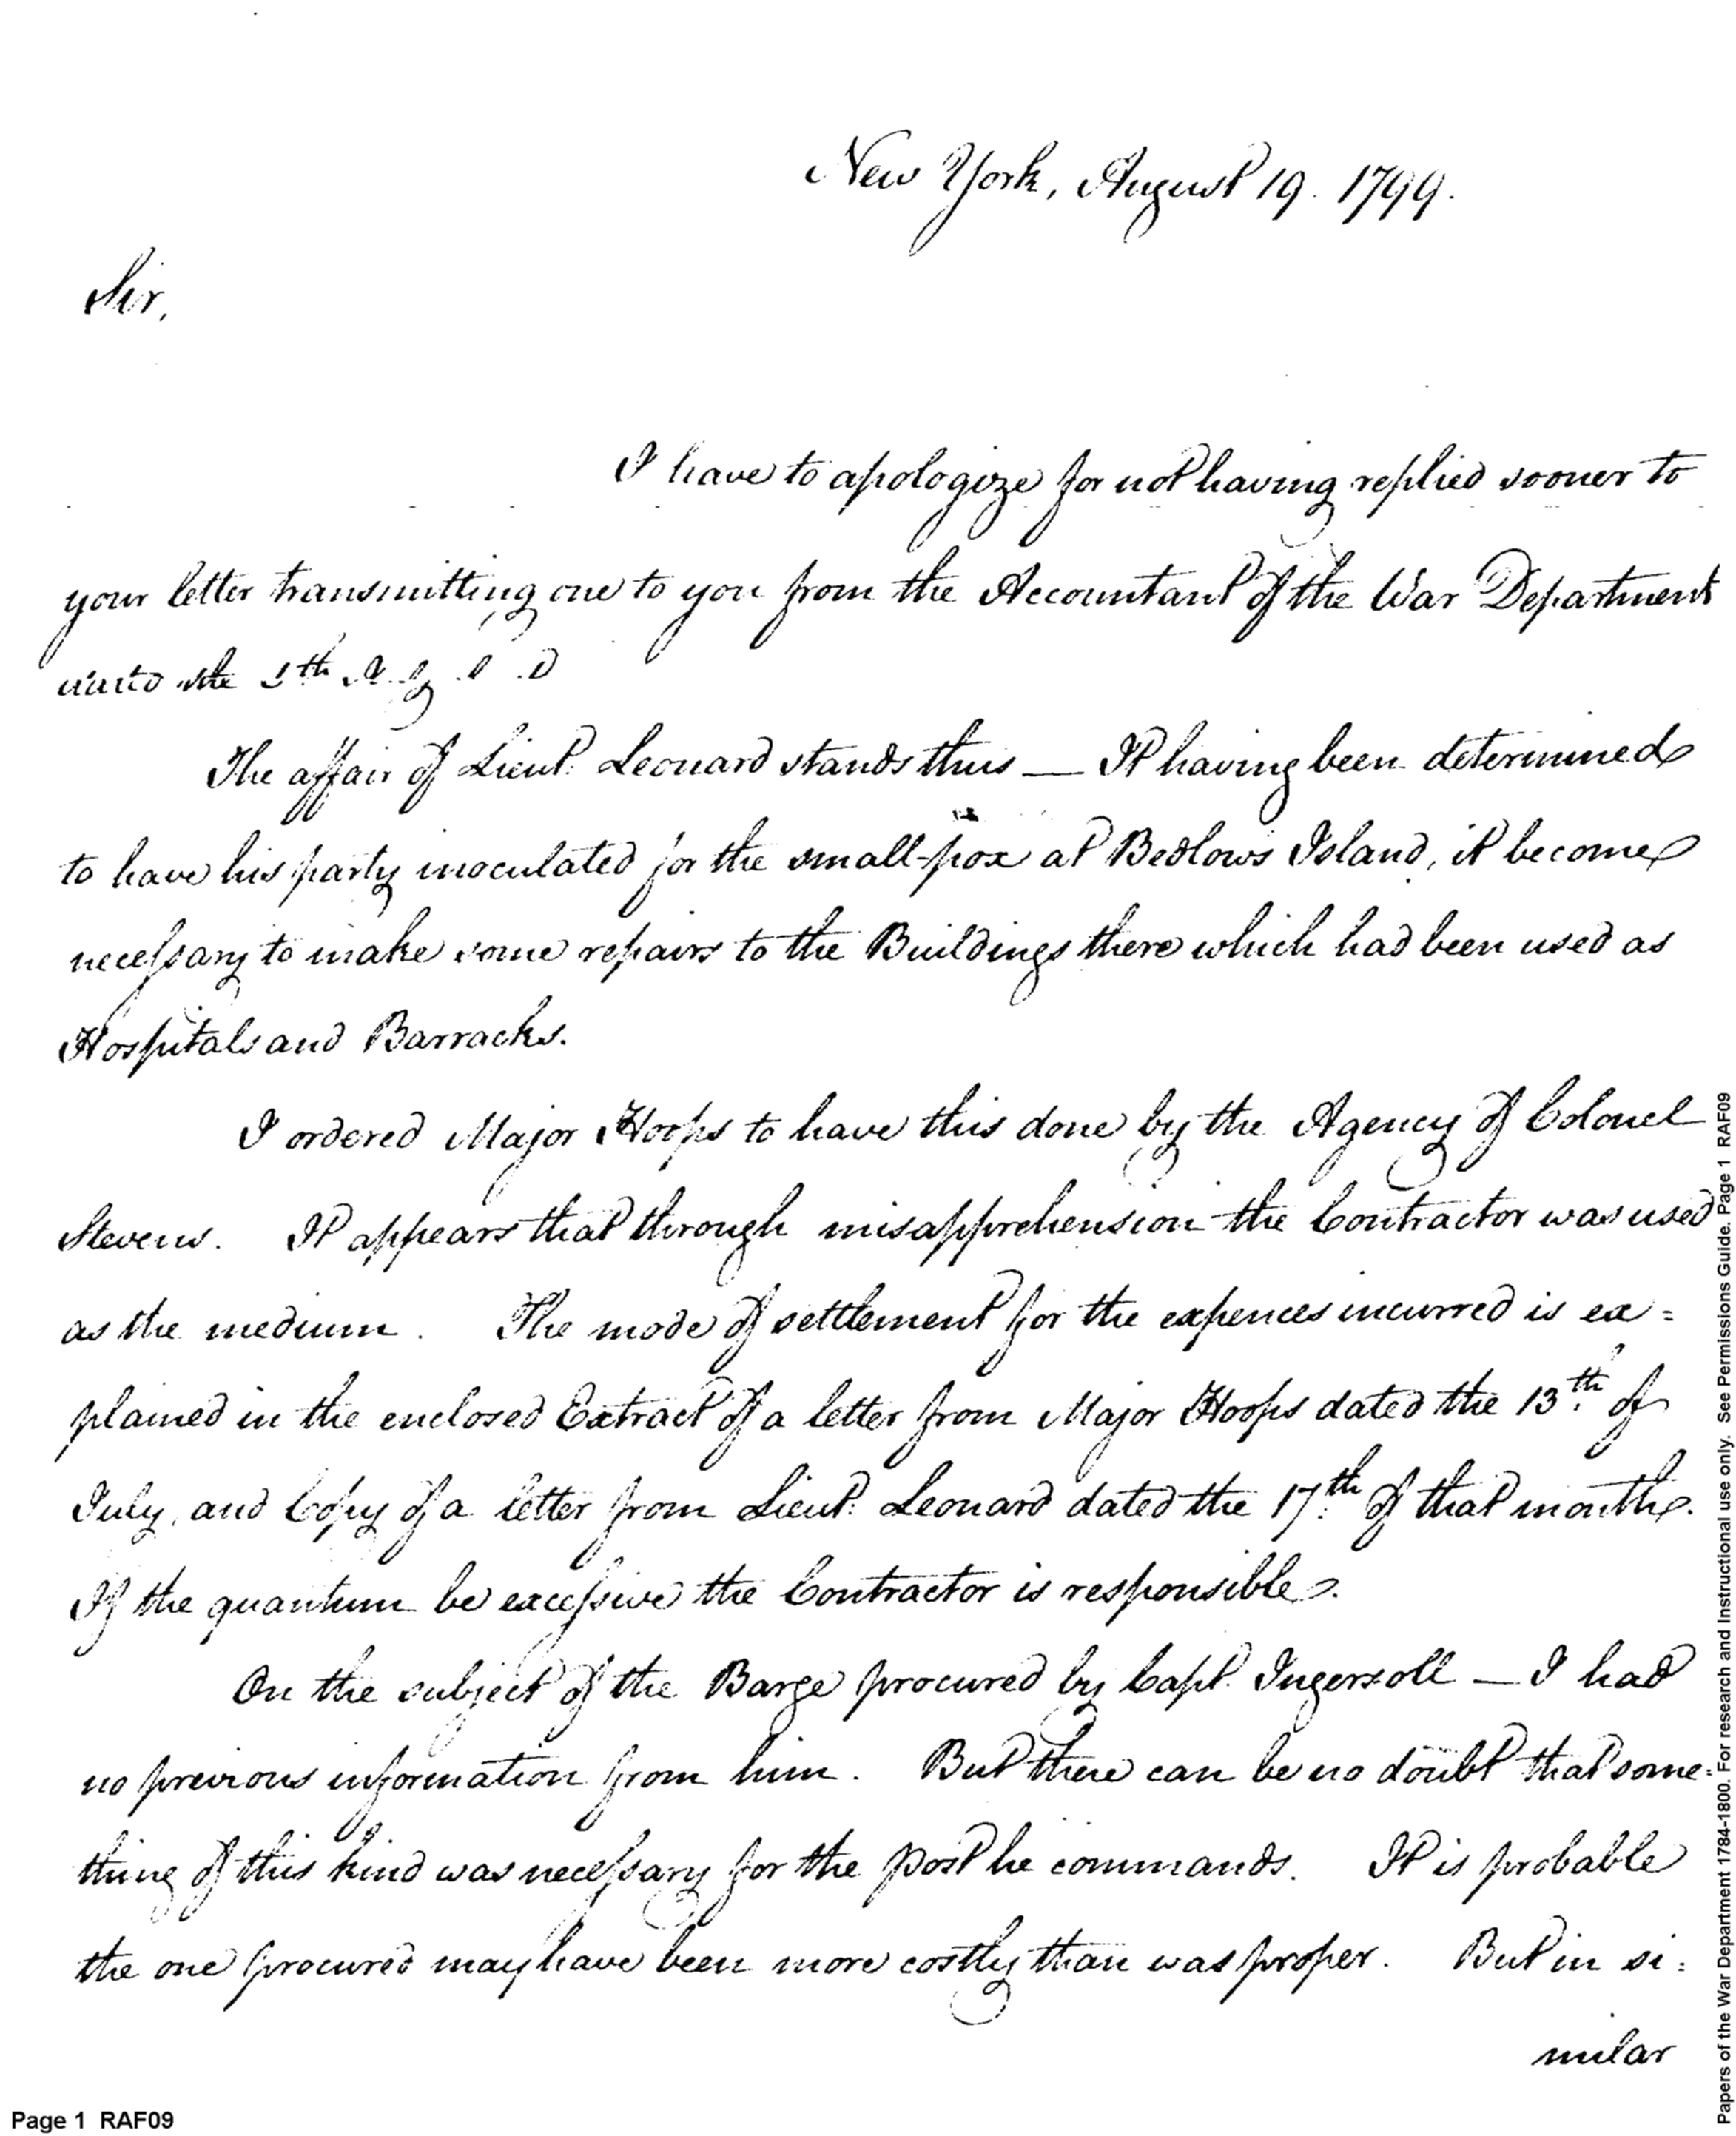 New York, August 19. 1799.
Sir,
I have to apologize for not having replied sooner to
your letter transmitting one to you from the Accountant of the War Department
the th
The affair of Lieut. Leonard stands thus — It having been determined
to have his party inoculated for the small-pox at Bedlows Island, it become
necessary to make some repairs to the Buildings there which had been used as
Hospitals and Barracks.
I ordered Major Hoops to have this done by the Agency of Colonel
Stevens. It appears that through misapprehension the Contractor was used
as the medium. The mode of settlement for the expences incurred is ex=
plained in the enclosed Extract of a letter from Major Hoops dated the 13th. of
July, and Copy of a letter from Lieut. Leonard dated the 17th. of that month.
If the quantum be excessive the Contractor is responsible.
On the subject of the Barge procured by Capt. Ingersoll — I had
no previous information from him. But there can be no doubt that some=
thing of this kind was necessary for the post he commands. It is probable
the one procured may have been more costly than was proper. But in si=
milar
Page 1 RAF09
Papers of the War Department 1784-1800. For research and Instructional use only. See Permissions Guide. Page 1 RAF09